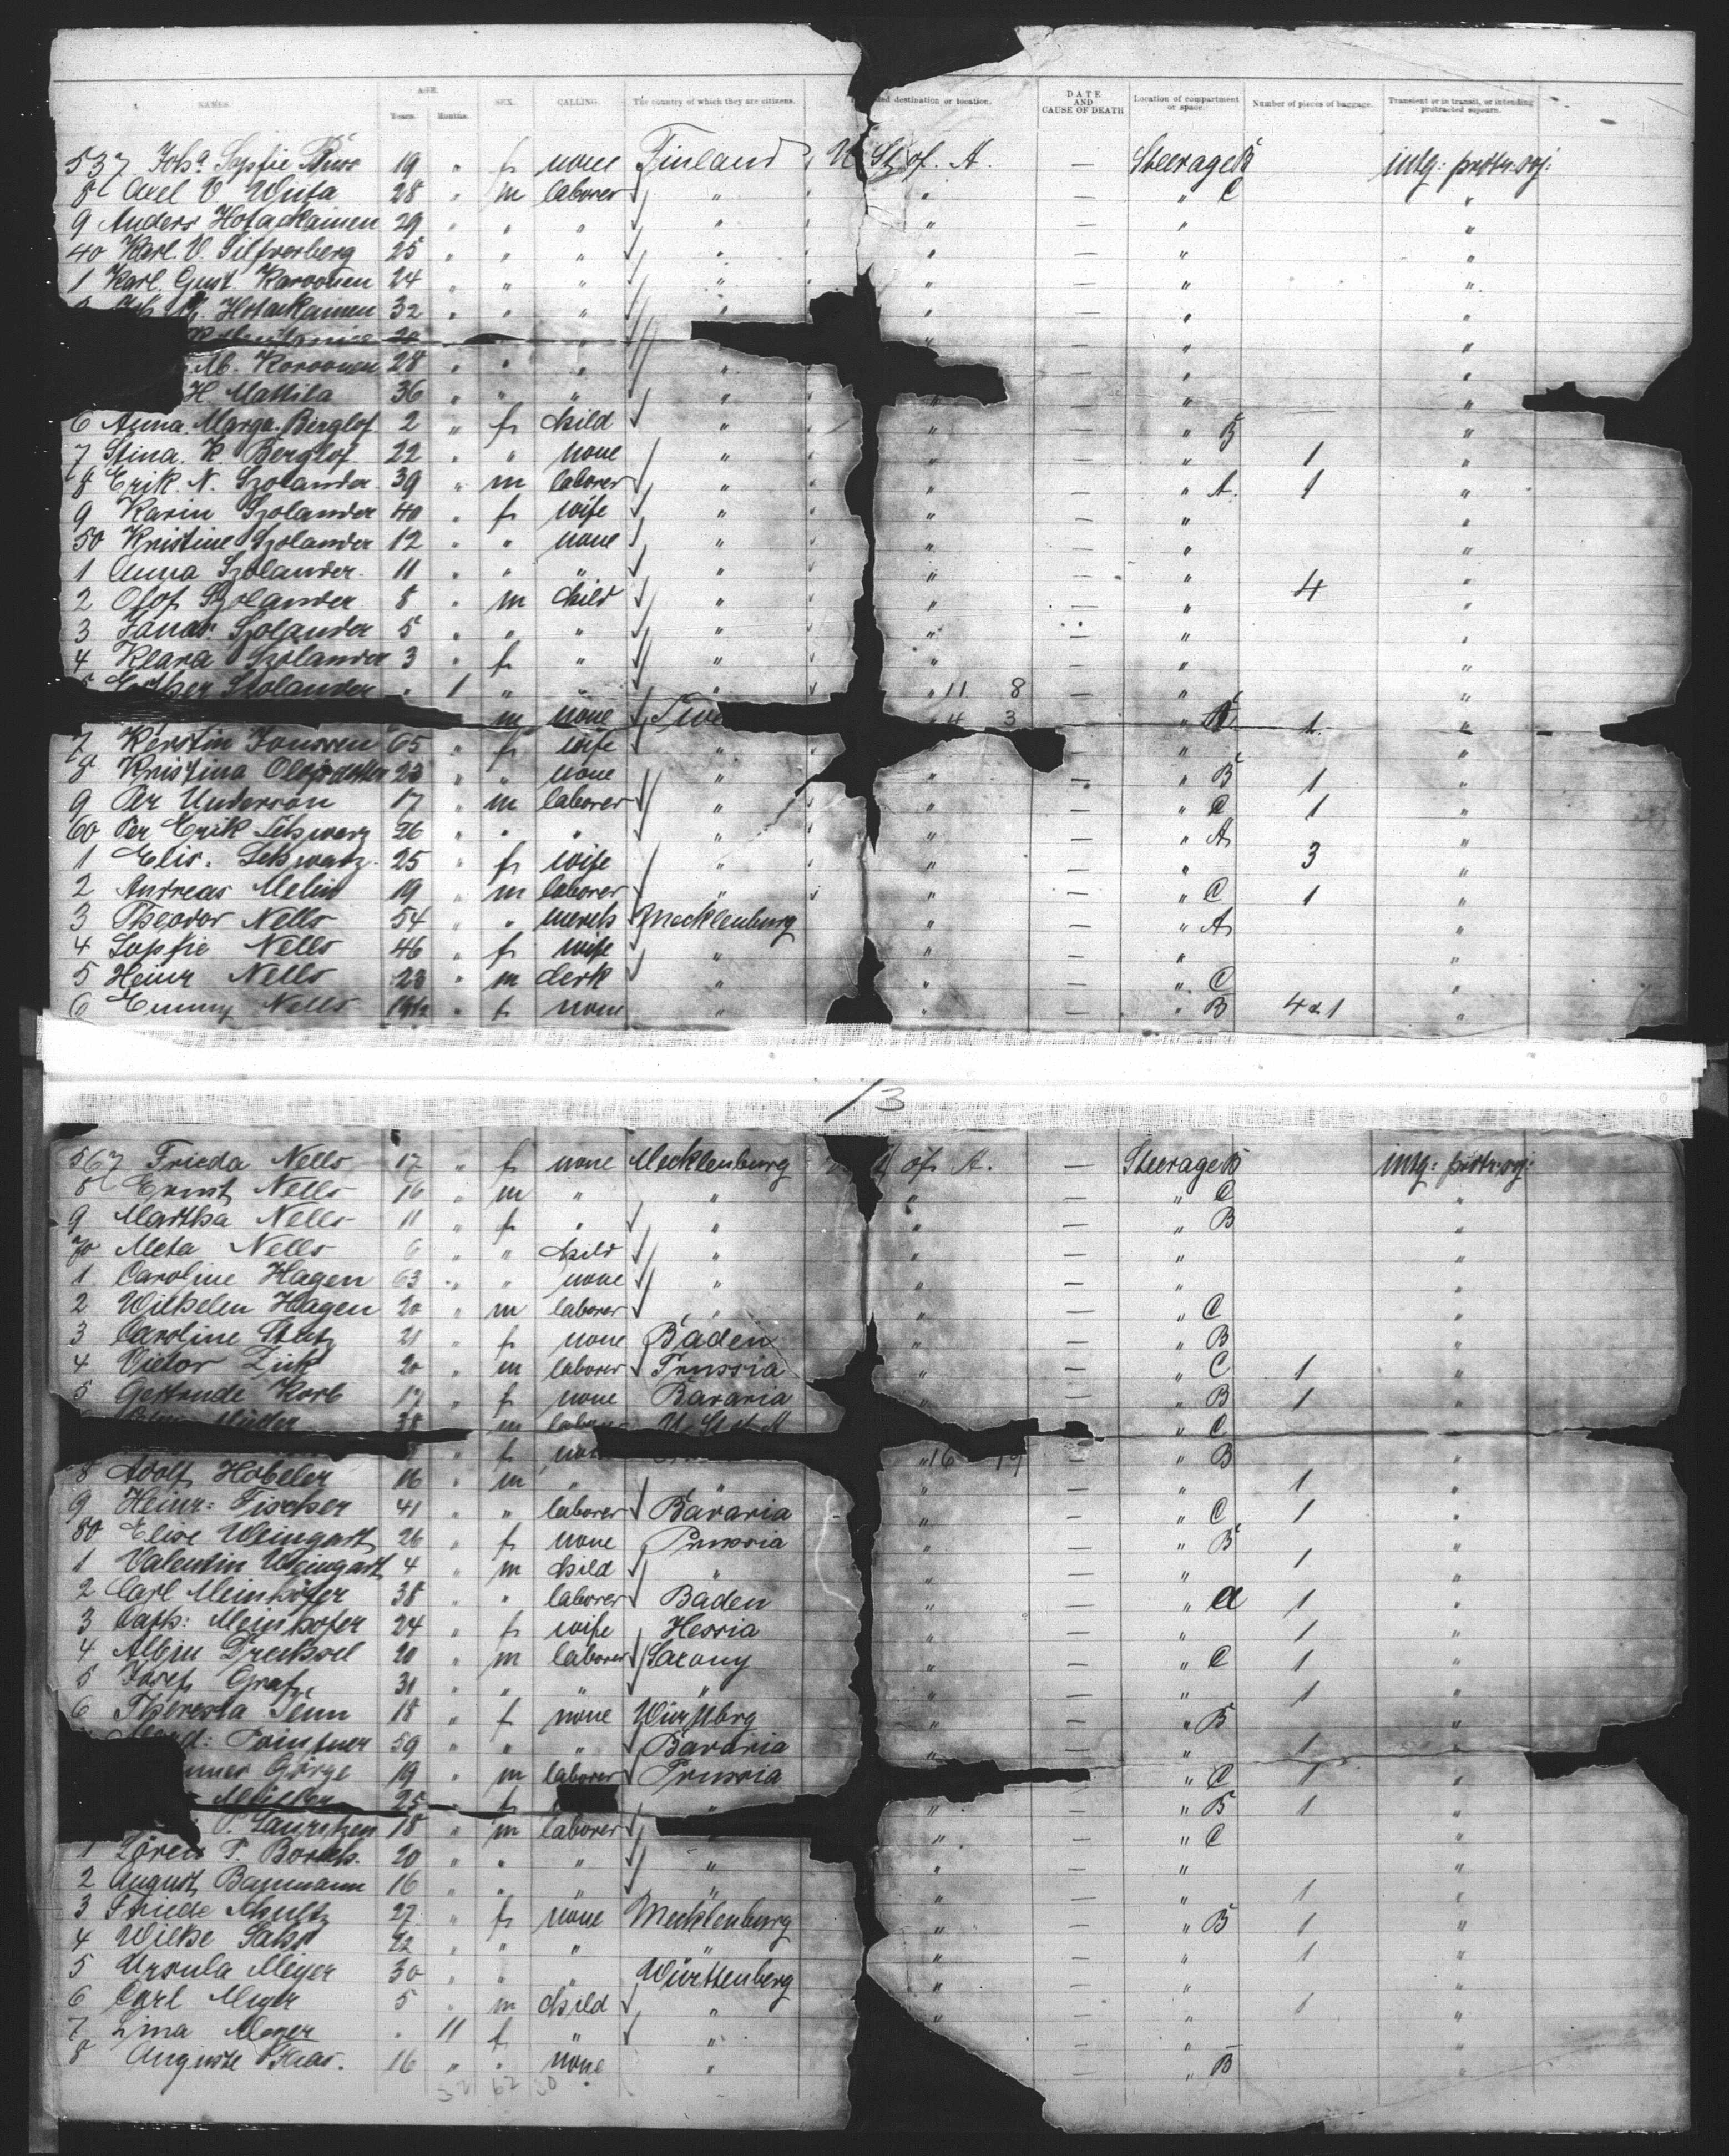 NAMES. AGE. Years. Months. SEX. CALLING. The country of which they are citizens. ded destination or location. DATE AND CAUSE OF DEATH Location of compartment or space. Number of pieces of baggage. Transient or in transit, or intending protracted sojourn.
537 Joh.ª Sopfie 19 " f none Finland U St of. A. — Steerage B intg: prott: soj:
8 Axel V Wuta 28 " m laborer " " — " C "
9 Anders Hotackainen 29 " " " " " — " "
40 Karl. V. Silfverberg 25 " " " " " — " "
1 Karl. Gust. Karoonen 24 " " " " " — " "
Hotackainen 32 " " " " " — " "
20 " " — " "
M. Koroonen 28 " " " " — " "
H. Mattila 36 " " " " " — " "
6 Anna. Marga. Berglof 2 " f child " " — " B "
7 Stina. K. Berglof 22 " " none " " — " 1 "
8 Erik. N. Szolander 39 " m laborer " " — " A. 1 "
9 Karin Szolander 40 " f wife " " — " "
50 Kristine Szolander 12 " " none " " — " "
1 Anna Szolander. 11 " " " " " — " 4 "
2 Olof Szolander 8 " m child " " — " "
3 Jonas Szolander 5 " " " " " — " "
4 Klara Szolander 3 " f " " " — " "
5 Esther Szolander " 1 " " " " 11 8 — " "
m none Swe " 4 3 — " 1 "
7 Kerstin Jonssen 65 " f wife " — " "
8 Kristina 23 " " none " " — " B 1 "
9 Per Anderson 17 " m laborer " " — " C 1 "
60 Per Erik Schwarz 26 " " " " " — " A "
1 Elis. Schwarz. 25 " f wife " " — " 3 "
2 Andreas Melin 19 " m laborer " " — " C 1 "
3 Theodor Nells 54 " " merch Mecklenburg " — " A "
4 Sopfie Nells 46 " f wife " " — " "
5 Heinr Nells 23 " m clerk " " — " C "
6 Emmy Nells 19 " f none " " — " B 4 & 1 "
13
567 Frieda Nells 17 " f none Mecklenburg of A. — Steerage B intg: prott: soj:
8 Ernst Nells 16 " m " " " — " C "
9 Martha Nells 11 " f " " " — " B "
70 Meta Nells 6 " " child " " — " "
1 Caroline Hagen 63 " " none " " — " "
2 Wilhelm Hagen 20 " m laborer " " — " C "
3 Caroline Stutz 21 " f none Baden " — " B "
4 Victor Zink 20 " m laborer Prussia " — " C 1 "
5 Gertrude Korb 17 " f none Bavaria — " B 1 "
Müller 38 m labor U. St of A — " C
f non " 16 19 — " B "
8 Adolf Hobeler 16 " m " " " — " 1 "
9 Heinr: Fischer 41 " " laborer Bavaria " — " C 1 "
80 Elise Weingart 26 " f none Prussia " — " B "
1 Valentin Weingart 4 " m child " " — " 1 "
2 Carl Meinhofer 38 " " laborer Baden " — " A 1 "
3 Cath: Meinhofer 24 " f wife Hessia " — " 1 "
4 Albin Drechsel 20 " m laborer Saxony " — " C 1 "
5 Josef Graf 31 " " " " " — " 1 "
6 Theresia Senn 18 " f none Würtbrg " — " B "
59 " " " Bavaria " — " 1 "
nnes Görge 19 " m laborer Prussia — " C 1 "
Müller 25 " f " " — " B 1 "
P. Lauritzen 18 " m laborer " — " C "
1 Sören P. Borch. 20 " " " " " — " "
2 August Baumann 16 " " " " " — " 1 "
3 Friede Schultz 27 " f none Mecklenburg " — " B 1 "
4 Wilhe Sahs 22 " " " " " — " 1 "
5 Ursula Meyer 30 " " " Württenberg " — " "
6 Carl Meyer 5 " m child " " — " 1 "
7 Lina Meyer " 11 f " " — " "
8 Auguste Haas. 16 " " none " — " B "